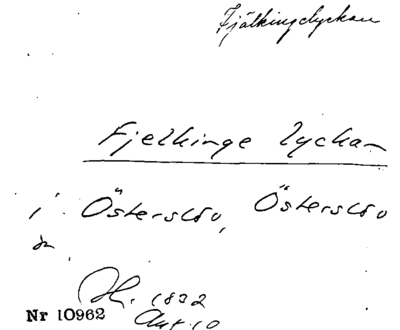 Fjälkingelyckan
Fjelkinge lyckan
i Österslöv, Österslöv
sn
1832
Nr 10962 Akt 10